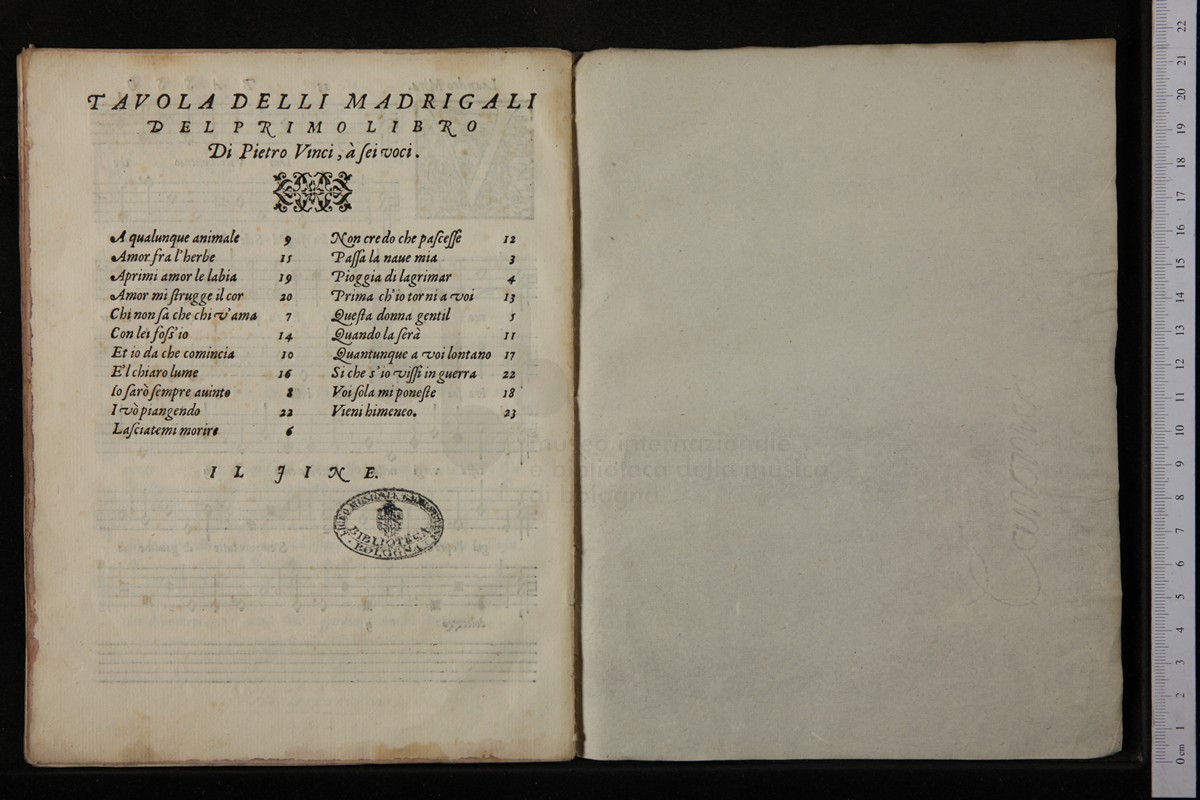 TAVOLA DELLI MADRIGALI
DEL PRIMO LIBRO
Di Pietro Vinci, à ſei voci.
A qualunque animale 9
Amor fra l'herbe 15
Aprimi amor le labia 19
Amor mi ſtrugge il cor 20
Chi non ſa che chi v'ama 7
Con lei foſs'io 14
Et io da che comincia 10
E'l chiaro lume 16
Io ſarò ſempre auinto 8
I vò piangendo 22
Laſciatemi morire 6
Non credo che paſceſſe 12
Paſſa la naue mia 3
Pioggia di lagrimar 4
Prima ch'io torni a voi 13
Queſta donna gentil 5
Quando la ſera 11
Quantunque a voi lontano 17
Si che s'io viſſi in guerra 22
Voi ſola mi poneſte 18
Vieni himeneo. 23
IL FINE.
LICEO MUSICALE
BIBLIOTECA
BOLOGNA
museo internazionale
e biblioteca della musica
di bologna
22
21
20
19
18
17
16
15
14
13
12
11
10
9
8
7
6
5
4
3
2
1
0 cm